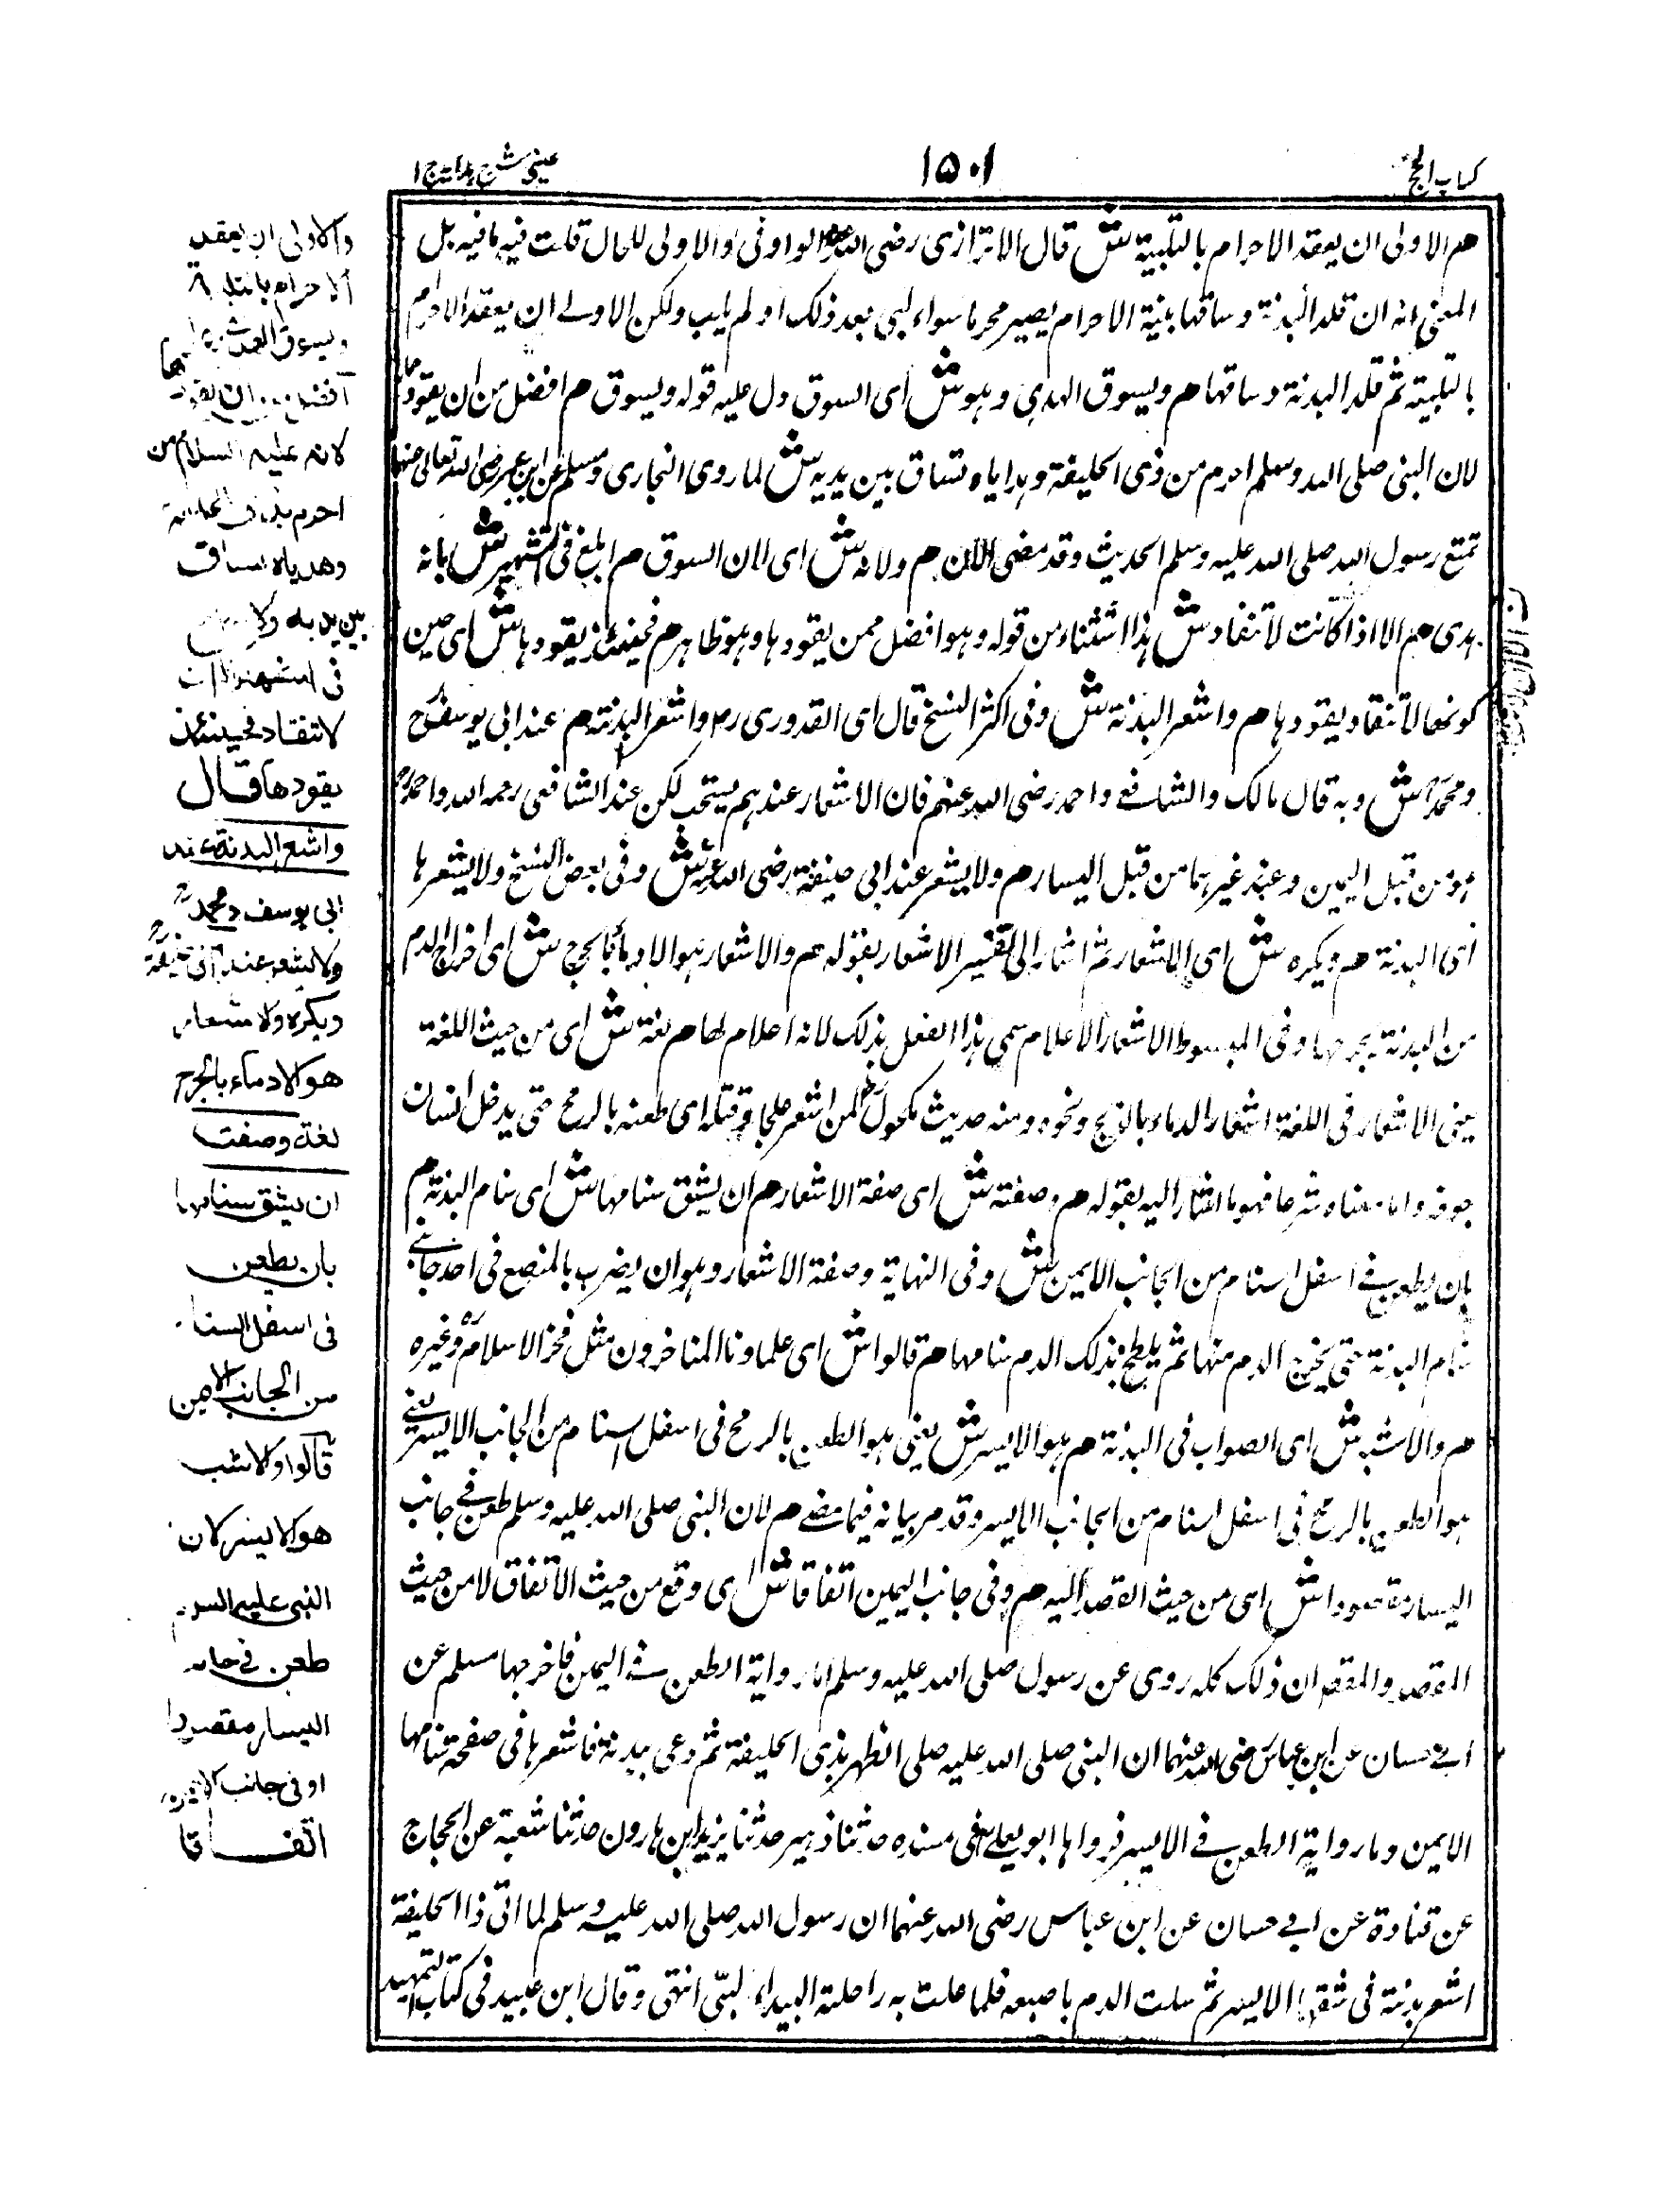 كتاب الحج
١٥٠١
عينى شرح هداية ج ١
هم الاولى ان يعقد الاحرام بالتلبية ش قال الاترازى رضى الله عنه الواو فى والاولى للحال قلت فيه ما فيه بل
المعنى انه ان قلد البدنة وساقها بنية الاحرام يصير محرما سواء لبى بعد ذلك او لم يلب ولكن الاولى ان يعقد الاحرام
بالتلبية ثم قلد البدنة وساقها هم ويسوق الهدى وهو ش اى السوق دل عليه قوله ويسوق هم افضل من ان يقودها
لان النبى صلى الله وسلم احرم من ذى الحليفة وهداياه تساق بين يديه ش لما روى البخارى ومسلم عن ابن عمر رضى الله تعالى عنهما
تمتع رسول الله صلى الله عليه وسلم الحديث وقد مضى الآن هم ولانه ش اى لان السوق هم ابلغ فى التشهير ش بانه
هدى هم الا اذا كانت لا تنقاد ش هذا استثناء من قوله وهو افضل ممن يقودها وهو ظاهر هم فحينئذ يقودها ش اى حين
كونها لا تنقاد يقودها هم واشعر البدنة ش وفى اكثر النسخ قال اى القدورى رح واشعر البدنة هم عند ابى يوسف رح
ومحمد رح ش وبه قال مالك والشافعى واحمد رضى الله عنهم فان الاشعار عندهم يستحب لكن عند الشافعى رحمه الله واحمد رح
هو من قبل اليمين وعند غيرهما من قبل اليسار هم ولا يشعر عند ابى حنيفة رضى الله عنه ش وفى بعض النسخ ولا يشعرها
اى البدنة هم ويكره ش اى الاشعار ثم اشار الى تفسير الاشعار بقوله هم والاشعار هو الادماء بالجرح ش اى اخراج الدم
من البدنة بجرحها وفى المبسوط الاشعار الاعلام سمى هذا الفعل بذلك لانه اعلام لها هم لغة ش اى من حيث اللغة
يعنى الاشعار فى اللغة اشعار الدماء بالجرح ونحوه ومنه حديث مكحول رح لمن اشعر علجا وقتله اى طعنه بالرمح حتى يدخل السنان
جوفه واما معناه شرعا فهو ما اشار اليه بقوله هم وصفته ش اى صفة الاشعار هم ان يشق سنامها ش اى سنام البدنة هم
بان يطعن فى اسفل السنام من الجانب الايمن ش وفى النهاية وصفة الاشعار وهو ان يضرب بالمبضع فى احد جانبى
سنام البدنة حتى يخرج الدم منها ثم يلطخ بذلك الدم سنامها هم قالوا ش اى علماونا المتاخرون مثل فخر الاسلام رح وغيره
هم والاشبه ش اى الصواب فى البدنة هم هو الايسر ش يعنى هو الطعن بالرمح فى اسفل السنام من الجانب الايسر يعنى
هو الطعن بالرمح فى اسفل السنام من الجانب الايسر وقد مر بيانه فيما مضى هم لان النبى صلى الله عليه وسلم طعن فى جانب
اليسار مقصودا ش اى من حيث القصد اليه هم وفى جانب اليمين اتفاقا ش اى وقع من حيث الاتفاق لا من حيث
القصد والمقصد ان ذلك كله روى عن رسول صلى الله عليه وسلم اما رواية الطعن فى اليمن فاخرجها مسلم عن
ابى حسان عن ابن عباس رضى الله عنهما ان النبى صلى الله عليه صلى الظهر بذى الحليفة ثم دعى ببدنة فاشعرها فى صفحة سنامها
الايمن وما رواية الطعن فى الايسر فرواها ابو يعلى فى مسنده حدثنا زهير حدثنا يزيد ابن هارون حدثنا شعبة عن الحجاج
عن قتادة عن ابى حسان عن ابن عباس رضى الله عنهما ان رسول الله صلى الله عليه وسلم لما اتى ذا الحليفة
اشعر بدنة فى شقها الايسر ثم سلت الدم باصبعه فلما علت به راحلته البيداء لبى انتهى وقال ابن عبيد فى كتاب التمهيد
والاولى ان يعقد
الاحرام بالتلبية
ويسوق الهدى
افضل ان يقودها
لانه عليه السلام
احرم بذى الحليفة
وهداياه تساق
بين يديه ولانه
فى التشهير الا ان
لا تنقاد فحينئذ
يقودها قال
واشعر البدنة عند
ابى يوسف ومحمد رح
ولا يشعر عند ابى حنيفة رح
ويكره والاشعار
هو الادماء بالجرح
لغة وصفته
ان يشق سنامها
بان يطعن
فى اسفل السنام
من الجانب الايمن
قالوا والاشبه
هو الايسر لان
النبى عليه السلام
طعن فى جانب
اليسار مقصودا
او فى جانب الايمن
اتفاقا